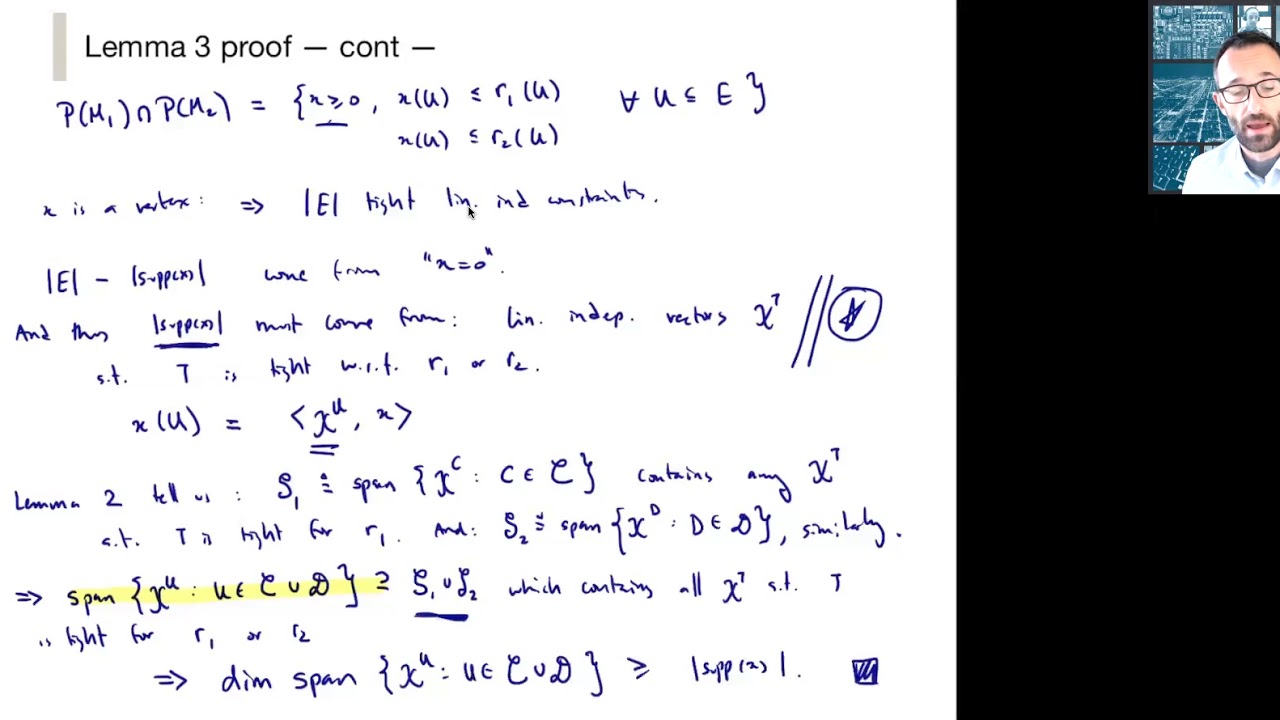 Lemma 3 proof — cont —
P(M₁) ∩ P(M₂) = {x ≥ 0, x(U) ≤ r₁(U) ∀ U ⊆ E}
x(U) ≤ r₂(U)
x is a vertex: ⇒ |E| tight lin. ind constraints.
|E| - |supp(x)| come from "x=0".
And thus |supp(x)| must come from: lin. indep. vectors χᵀ
s.t. T is tight w.r.t. r₁ or r₂.
x(U) = <χᵁ, x>
Lemma 2 tell us: S₁ ≜ span {χᶜ : C ∈ 𝒞} contains any χᵀ
s.t. T is tight for r₁. And: S₂ ≜ span {χᴰ : D ∈ 𝒟}, similarly.
⇒ span {χᵁ : U ∈ 𝒞 ∪ 𝒟} ⊇ S₁ ∪ S₂ which contains all χᵀ s.t. T
is tight for r₁ or r₂
⇒ dim span {χᵁ : U ∈ 𝒞 ∪ 𝒟} ≥ |supp(x)|.